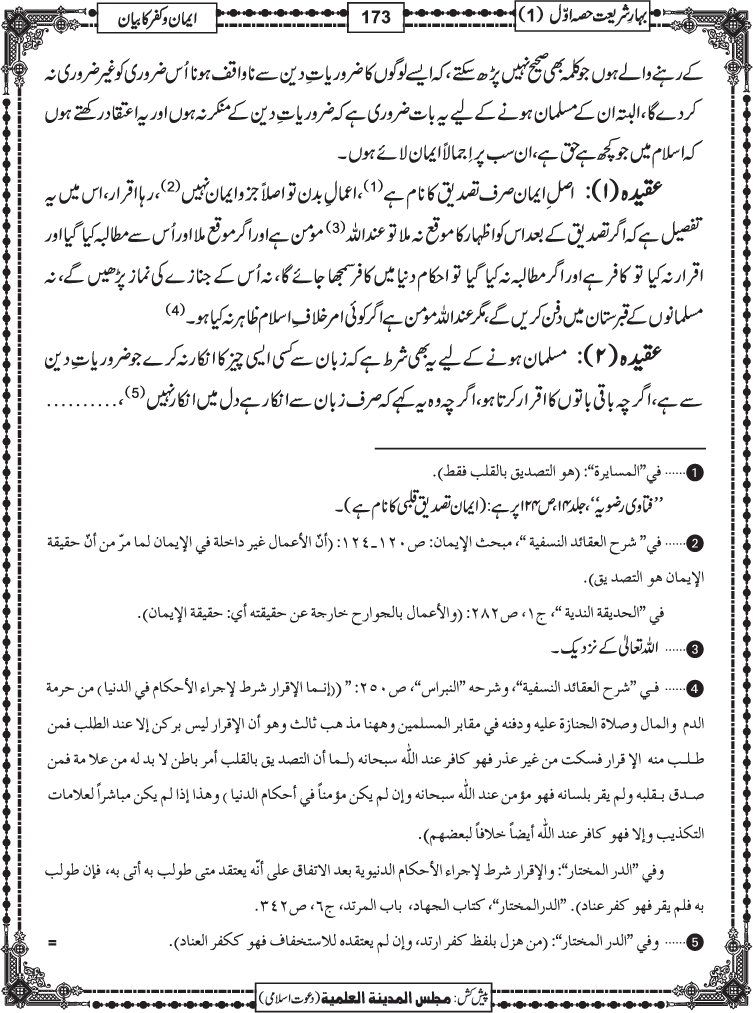 بہار شریعت حصہ اوّل (1)
173
ایمان و کفر کا بیان
کے رہنے والے ہوں جو کلمہ بھی صحیح نہیں پڑھ سکتے، کہ ایسے لوگوں کا ضروریاتِ دین سے ناواقف ہونا اُس ضروری کو غیر ضروری نہ
کردے گا، البتہ ان کے مسلمان ہونے کے لیے یہ بات ضروری ہے کہ ضروریاتِ دین کے منکر نہ ہوں اور یہ اعتقاد رکھتے ہوں
کہ اسلام میں جو کچھ ہے حق ہے، ان سب پر اِجمالاً ایمان لائے ہوں۔
عقیدہ (۱): اصلِ ایمان صرف تصدیق کا نام ہے (1)، اعمالِ بدن تو اصلاً جزوِ ایمان نہیں (2)، رہا اقرار، اس میں یہ
تفصیل ہے کہ اگر تصدیق کے بعد اس کو اظہار کا موقع نہ ملا تو عند اللہ (3) مومن ہے اور اگر موقع ملا اور اُس سے مطالبہ کیا گیا اور
اقرار نہ کیا تو کافر ہے اور اگر مطالبہ نہ کیا گیا تو احکامِ دنیا میں کافر سمجھا جائے گا، نہ اُس کے جنازے کی نماز پڑھیں گے، نہ
مسلمانوں کے قبرستان میں دفن کریں گے، مگر عند اللہ مومن ہے اگر کوئی امر خلافِ اسلام ظاہر نہ کیا ہو۔ (4)
عقیدہ (۲): مسلمان ہونے کے لیے یہ بھی شرط ہے کہ زبان سے کسی ایسی چیز کا انکار نہ کرے جو ضروریاتِ دین
سے ہے، اگرچہ باقی باتوں کا اقرار کرتا ہو، اگرچہ وہ یہ کہے کہ صرف زبان سے انکار ہے دل میں انکار نہیں (5)، ..........
1 ...... في "المسايرة": (هو التصديق بالقلب فقط).
''فتاوی رضویہ''، جلد ۱۴، ص ۱۲۴ پر ہے: (ایمان تصدیق قلبی کا نام ہے)۔
2 ...... في "شرح العقائد النسفية"، مبحث الإيمان: ص ١٢٠ـ١٢٤: (أنّ الأعمال غير داخلة في الإيمان لما مرّ من أنّ حقيقة
الإيمان هو التصديق).
في "الحديقة الندية"، ج١، ص٢٨٢: (والأعمال بالجوارح خارجة عن حقيقته أي: حقيقة الإيمان).
3 ...... اللہ تعالیٰ کے نزدیک۔
4 ...... في "شرح العقائد النسفية"، وشرحه "النبراس"، ص٢٥٠: " ((إنما الإقرار شرط لإجراء الأحكام في الدنيا) من حرمة
الدم والمال وصلاة الجنازة عليه ودفنه في مقابر المسلمين وههنا مذهب ثالث وهو أن الإقرار ليس بركن إلا عند الطلب فمن
طلب منه الإقرار فسكت من غير عذر فهو كافر عند الله سبحانه (لما أن التصديق بالقلب أمر باطن لا بد له من علامة فمن
صدق بقلبه ولم يقر بلسانه فهو مؤمن عند الله سبحانه وإن لم يكن مؤمناً في أحكام الدنيا) وهذا إذا لم يكن مباشراً لعلامات
التكذيب وإلا فهو كافر عند الله أيضاً خلافاً لبعضهم).
وفي "الدر المختار": والإقرار شرط لإجراء الأحكام الدنيوية بعد الاتفاق على أنّه يعتقد متى طولب به أتى به، فإن طولب
به فلم يقر فهو كفر عناد). "الدرالمختار"، كتاب الجهاد، باب المرتد، ج٦، ص٣٤٢.
5 ...... وفي "الدر المختار": (من هزل بلفظ كفر ارتد، وإن لم يعتقده للاستخفاف فهو ككفر العناد). =
پیش کش: مجلس المدينة العلمية (دعوتِ اسلامی)